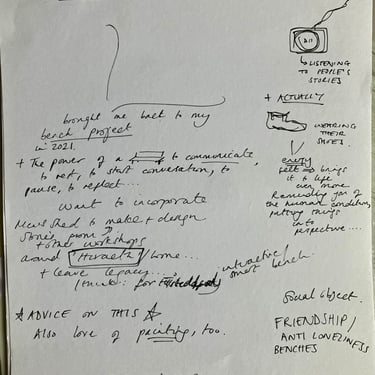 brought me back to my
bench project
in 2021.
+ The power of a to communicate,
to rest, to start conversation, to
pause, to reflect...
Want to incorporate
Men's Shed to make + design
Stories from
+ other workshops
around 'Hiraeth' / home...
+ leave legacy...
for interactive/
smart bench.
★ ADVICE ON THIS ★
Also love of painting, too.
↳ LISTENING
TO PEOPLE'S
STORIES
+ ACTUALLY
WEARING
THEIR
SHOES.
↓
every
felt ⇒ brings
it to life
even more
Reminding you of
the human condition,
putting things
into
perspective....
Social object.
FRIENDSHIP/
ANTI LONELINESS
BENCHES